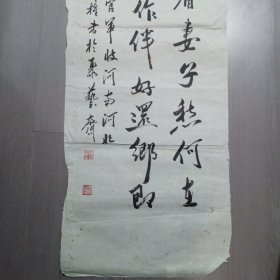 看妻子愁何在
作伴好還鄉即
官軍收河南河北
書於聚藝齋